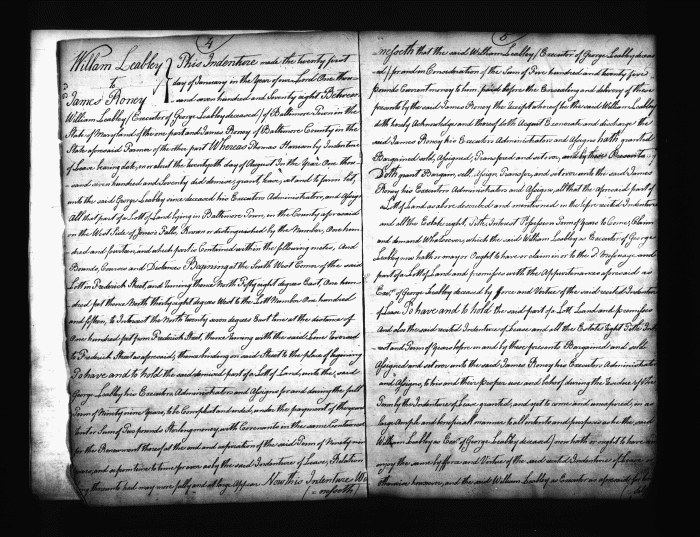 4
William Leabley } This Indenture made the twenty first
to day of January in the Year of our Lord One thou-
James Roney } sand seven hundred and Seventy eight Between
William Leabley (Executor of George Leabley deceased) of Baltimore Town in the
State of Maryland of the one part and James Roney of Baltimore County in the
State aforesaid Farmer of the other part Whereas Thomas Harrison by Indenture
of Lease bearing date, on or about the twentyeth day of August In the Year One thou-
-sand seven hundred and Seventy did demise, grant, lease, set and to farm let,
unto the said George Leabley since deceased his Executors Administrators, and Assigns
All that part of a Lott of Land lying in Baltimore Town, in the County aforesaid
on the West Side of Jones's Falls, known & distinguished by the Number, One hun-
dred and fourteen, and which part is Contained within the following metes, and
Bounds, Courses and Distances Beginning at the South West Corner of the said
Lott in Frederick Street, and running thence North Fifty eight degrees East, One hun-
dred feet thence North thirty eight degrees West to the Lott Number One hundred
and fifteen, to Intersect the North twenty seven degrees East line at the distance of
One hundred feet from Frederick Street, thence running with the said Line Reversed
to Frederick Street as aforesaid, thence binding on said Street to the place of beginning
To have and to hold the said demised part of a Lott of Land, unto the said
George Leabley his Executors Administrators and Assigns for and during the full
Term of Ninety nine Years, to be Compleat and ended, under the payment of the yearly
Rent or Sum of Two pounds Sterling money with Covenants in the same Contained
for the Renewment thereof at the end and expiration of the said Term of Ninety nine
years, and so from time to time for ever as by the said Indenture of Lease, Relation
being thereunto had may more fully and at large Appear Now this Indenture Wit
(-nesseth)
5
-nesseth that the said William Leabley (Executor of George Leabley deceas-
-ed) for and in Consideration of the Sum of Five hundred and twenty five
pounds Current money to him paid before the Ensealing and delivery of these
presents by the said James Roney the Receipt whereof he the said William Leabley
doth hereby Acknowledge and thereof doth Acquit Exonerate and discharge the
said James Roney his Executors Administrators and Assigns hath granted
Bargained sold, Assigned, Transferred and set over, and by these Presents
Doth grant Bargain, sell, Assign Transfer, and set over unto the said James
Roney his Executors Administrators and Assigns, all that the aforesaid part of
a Lott of Land as above described and mentioned in the before recited Indenture
and all the Estate right, Title, Interest Possession Term of years to Come, Claim
and demand Whatsoever, which the said William Leabley as Executor of George
Leabley now hath or may or Ought to have or claim in or to the Message, and
part of a Lott of Land and premisses with the Appurtenances aforesaid as
Exec.r of George Leabley deceased by force and Virtue of the said recited Indenture
of Lease To have and to hold the said part of a Lott Land and premisses
And also the said recited Indenture of Lease and all the Estate Right Title Inte-
rest and Term of years before in and by these presents Bargained and sold
Assigned and set over unto the said James Roney his Executors Administrators
and Assigns, to his and their proper use and behoof during the Residue of the
Term by the Indenture of Lease granted, and yet to come and unexpired, in as
large Ample and beneficial manner to all intents and purposes as he the said
William Leabley as Exec.r of George Leabley deceased) now hath or ought to have and
enjoy the same by force and Virtue of the said recited Indenture of Lease or
otherwise however, and the said William Leabley as Executor as aforesaid, for